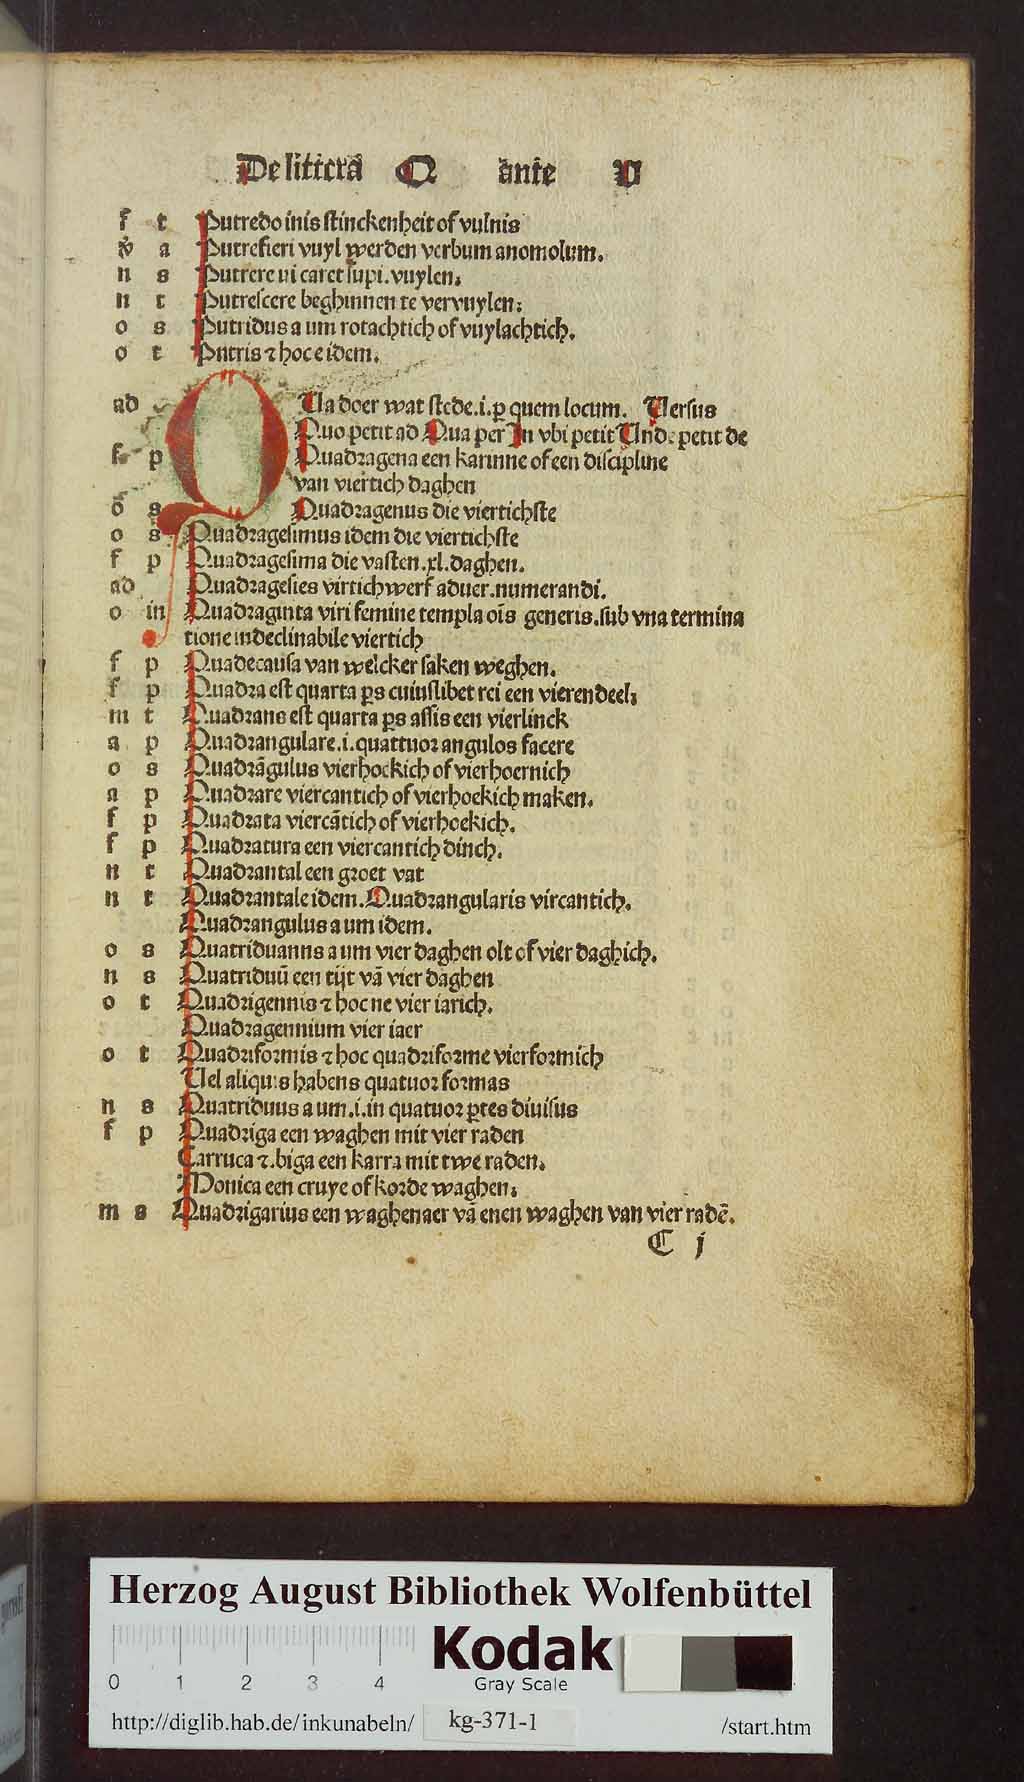 De litterā Q ante V
f t Putredo inis stinckenheit of vulnis
v̄ a Putrefieri vuyl werden verbum anomolum.
n s Putrere ui caret supi. vuylen.
n t Putrescere beghinnen te vervuylen.
o s Putridus a um rotachtich of vuylachtich.
o t Putris ⁊ hoc e idem.
ad QUa doer wat stede .i. ꝑ quem locum. Versus
Quo petit ad Qua per In vbi petit Unde petit de
f p Quadragena een karinne of een discipline
van viertich daghen
o s Quadragenus die viertichste
o s Quadragesimus idem die viertichste
f p Quadragesima die vasten .xl. daghen.
ad Quadragesies virtichwerf aduer. numerandi.
o in Quadraginta viri femine templa oīs generis. sub vna termina
tione indeclinabile viertich
f p Quadecausa van welcker saken weghen.
f p Quadra est quarta ꝑs cuiuslibet rei een vierendeel.
m t Quadrans est quarta ꝑs assis een vierlinck
a p Quadrangulare .i. quattuor angulos facere
o s Quadrāgulus vierhockich of vierhoernich
a p Quadrare viercantich of vierhoekich maken.
f p Quadrata viercātich of vierhoekich.
f p Quadratura een viercantich dinch.
n t Quadrantal een groet vat
n t Quadrantale idem. Quadrangularis vircantich.
Quadrangulus a um idem.
o s Quatriduanns a um vier daghen olt of vier daghich.
n s Quatriduū een tijt vā vier daghen
o t Quadrigennis ⁊ hoc ne vier iarich.
Quadragennium vier iaer
o t Quadriformis ⁊ hoc quadriforme vierformich
Vel aliquis habens quatuor formas
n s Quatriduus a um .i. in quatuor ꝑtes diuisus
f p Quadriga een waghen mit vier raden
Carruca ⁊. biga een karra mit twe raden.
Monica een cruye of korde waghen.
m s Quadrigarius een waghenaer vā enen waghen van vier radē.
C j
Herzog August Bibliothek Wolfenbüttel
0 1 2 3 4
Kodak
Gray Scale
http://diglib.hab.de/inkunabeln/ kg-371-1 /start.htm